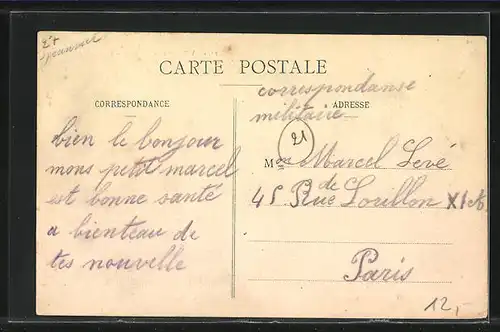 CARTE POSTALE
CORRESPONDANCE
bien le bonjour
mons petit marcel
est bonne santé
a bienteau de
tes nouvelle
correspondanse
militaire
ADRESSE
21
Mon Marcel Levé
45 Rue de Lorillon XI
Paris
12,-